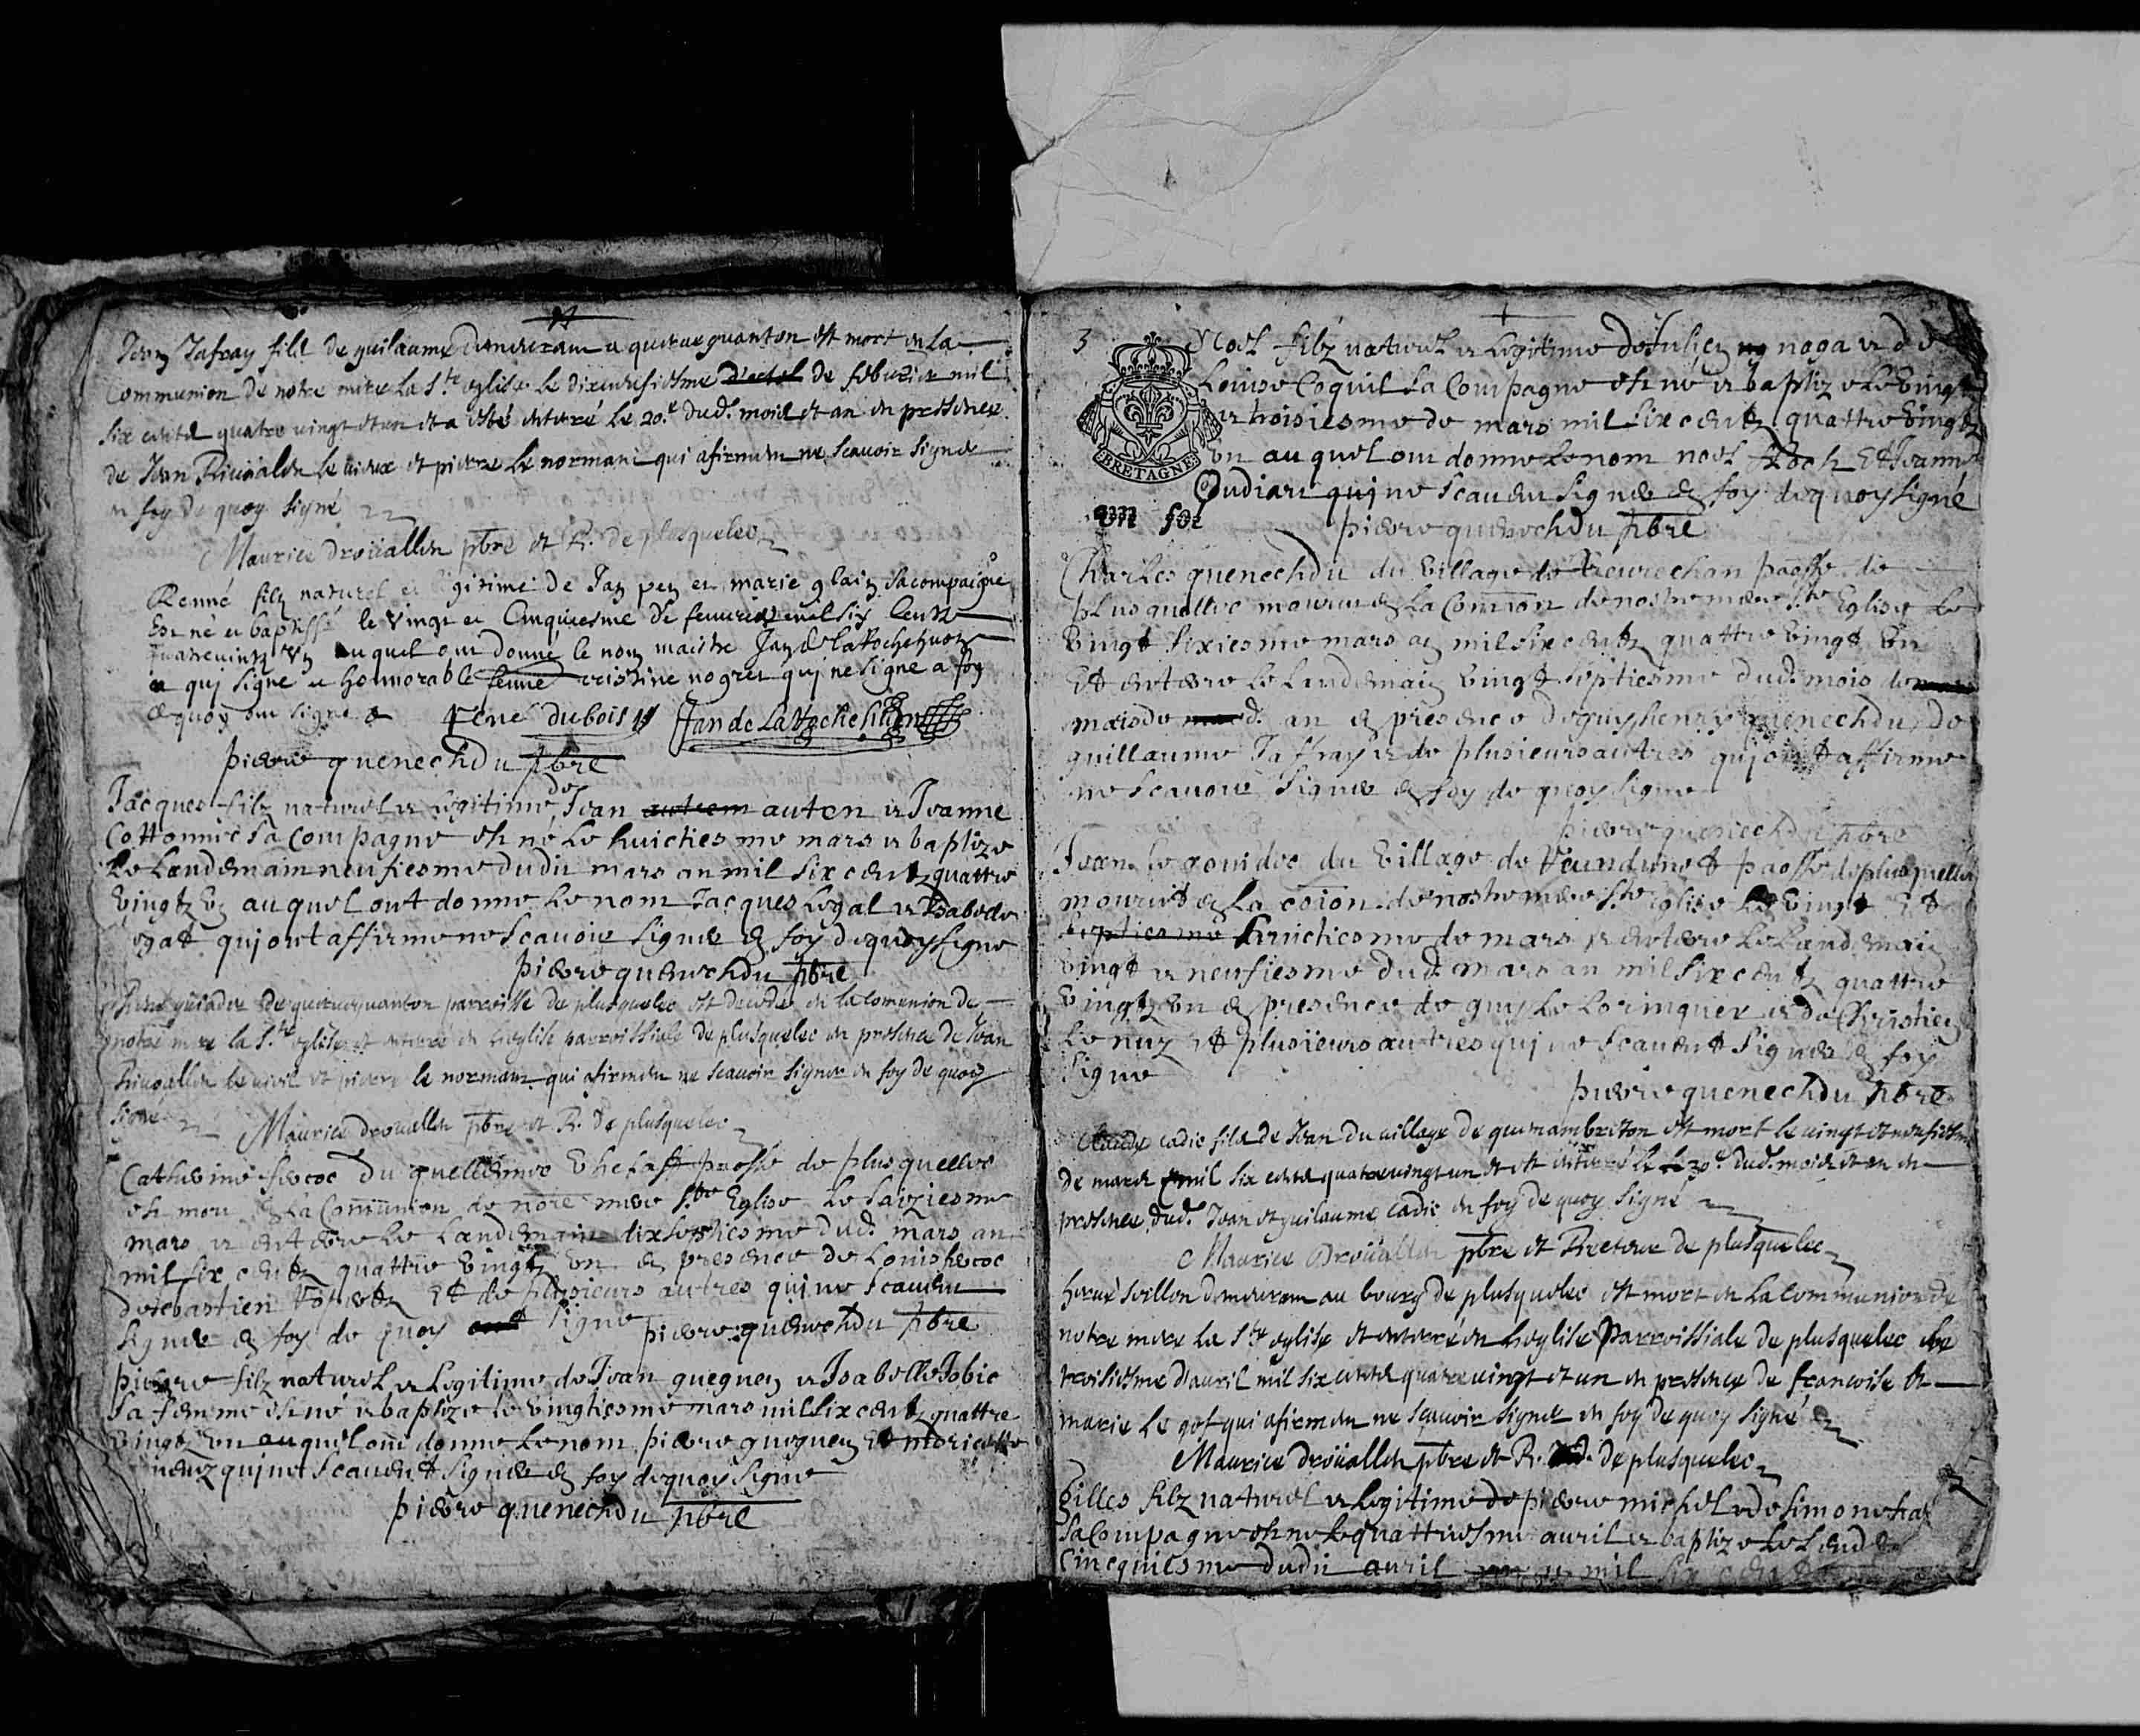 Ivan Jafray filz de guilaume demeurant a querueguanton est mort en la
Communion de notre mere la Ste eglise le dixneufiesme de febvrier mil
six cents quatre vingt et un et a esté enterré le 20.e dud. mois et an en presence
de Ivan Riuoalen le vieux et pierre le normant qui afirment ne scauoir signer
en foy de quoy signé
Maurice droüallen pbre et R. de plusquelec
Renné filz naturel et legitime de Jan pen et marie glaiz sa compaigne
Est né et baptissé le vingt et Cinquiesme de feuurier mil six Cents
quatrevingtz Un auquel ont donné le nom maistre Jan de la Rochehuon
qui signe et honnorable femme cristine nogret qui ne signe a foy
de quoy ont signé
rené dubois Jan de La Rochehuon
pierre quenechdu pbre
Jacques filz naturel et legitime de Ivan auten et Ivanne
Cottonnec sa compagne est né le huictiesme mars et baptize
le landemain neufiesme dudit mars an mil six centz quattre
vingtz Un auquel ont donne le nom Jacques Legal et
qui ont affirme ne scauoir signer en foy de quoy signe
pierre quenechdu pbre
de querueguanton parroisse de plusquelec est decedee en la comunion de
notre mere la Ste eglise et enterree en l'eglise parroissiale de plusquelec en presence de Ivan
Riuoallen le vieil et pierre le normant qui afirment ne scauoir signer en foy de quoy
signe
Maurice drouallen pbre et R. de plusquelec
Catherine hercoc du paosse de plusquellec
est mou en la Communion de nore mere Ste Eglise le saiziesme
mars et enterre le landemain dixseptiesme dud. mars an
mil six centz quattre vingtz Un en presence de Louis hercoc
de sebastien Et de plusieurs autres qui ne scauent
signer en foy de quoy signe pierre quenechdu pbre
pierre filz naturel et legitime de Ivan gueguen et Isabelle Jobic
sa femme est né et baptize le vingtiesme mars mil six centz quattre
vingtz Un auquel ont donne le nom pierre gueguen Et
qui ne scauent signer en foy de quoy signe
pierre quenechdu pbre
3
Noel filz naturel et legitime de Julien noga et de
Louise Coquil sa Compagne est né et baptize le vingt
et troisiesme de mars mil six centz quattre vingtz
Un auquel ont donne le nom noel Et Ivanne
qui ne scauent signer en foy de quoy signé
BRETAGNE
pierre quenechdu pbre
Charles quenechdu du village de paosse de
plusquellec mourut en la Comion de nostre mere Ste Eglise le
vingt sixiesme mars an mil six centz quattre vingt Un
Et enterre le landemain vingt septiesme dud. mois
d. an en presence de guy henry quenechdu de
guillaume Jaffray et de plusieurs autres qui ont affirme
ne scauoir signer en foy de quoy signe
pierre quenechdu pbre
Ivan le du village de paosse de plusquellec
mourut en la coion de nostre mere Ste eglise le vingt Et
huictiesme de mars et enterre le landemain
vingt et neufiesme dud. mars an mil six centz quattre
vingtz Un en presence de guy le Lorinquer et de Christien
Lenuz Et plusieurs autres qui ne scauent signer en foy
signe
pierre quenechdu pbre
Claude cadic filz de Ivan du village de est mort le vingt et neufiesme
de mars mil six cents quatrevingt un et est enterré le 30e dud. mois et an en
presence dud. Ivan et guilaume cadic en foy de quoy signé
Maurice Droüallen pbre et Recteur de plusquelec
herué soillon demeurant au bourg de plusquelec est mort en la communion de
notre mere la Ste eglise et enterré en l'eglise Parroissiale de plusquelec le
troisiesme d'auril mil six cents quatrevingt et un en presence de francoise et
marie le gof qui afirment ne scauoir signer en foy de quoy signé
Maurice droüallen pbre et R. de plusquelec
gilles filz naturel et legitime de pierre michel et de simone
sa Compagne est né le quattriesme auril et baptize le
Cincquiesme dudit auril mil six centz